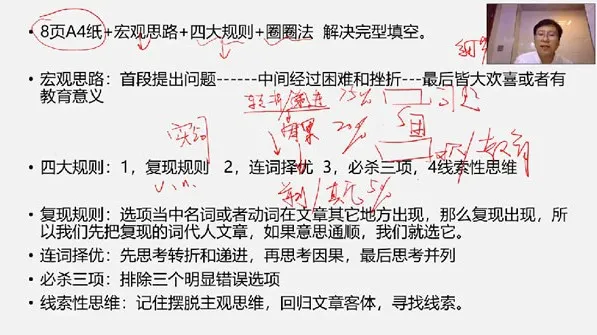 • 8页A4纸+宏观思路+四大规则+圈圈法 解决完型填空。
• 宏观思路：首段提出问题------中间经过困难和挫折---最后皆大欢喜或者有
教育意义
转折/递进 75%
因果 20%
• 四大规则：1，复现规则 2，连词择优 3，必杀三项，4线索性思维
v. n.
并列/其他 5%
• 复现规则：选项当中名词或者动词在文章其它地方出现，那么复现出现，所
以我们先把复现的词代人文章，如果意思通顺，我们就选它。
• 连词择优：先思考转折和递进，再思考因果，最后思考并列
• 必杀三项：排除三个明显错误选项
• 线索性思维：记住摆脱主观思维，回归文章客体，寻找线索。